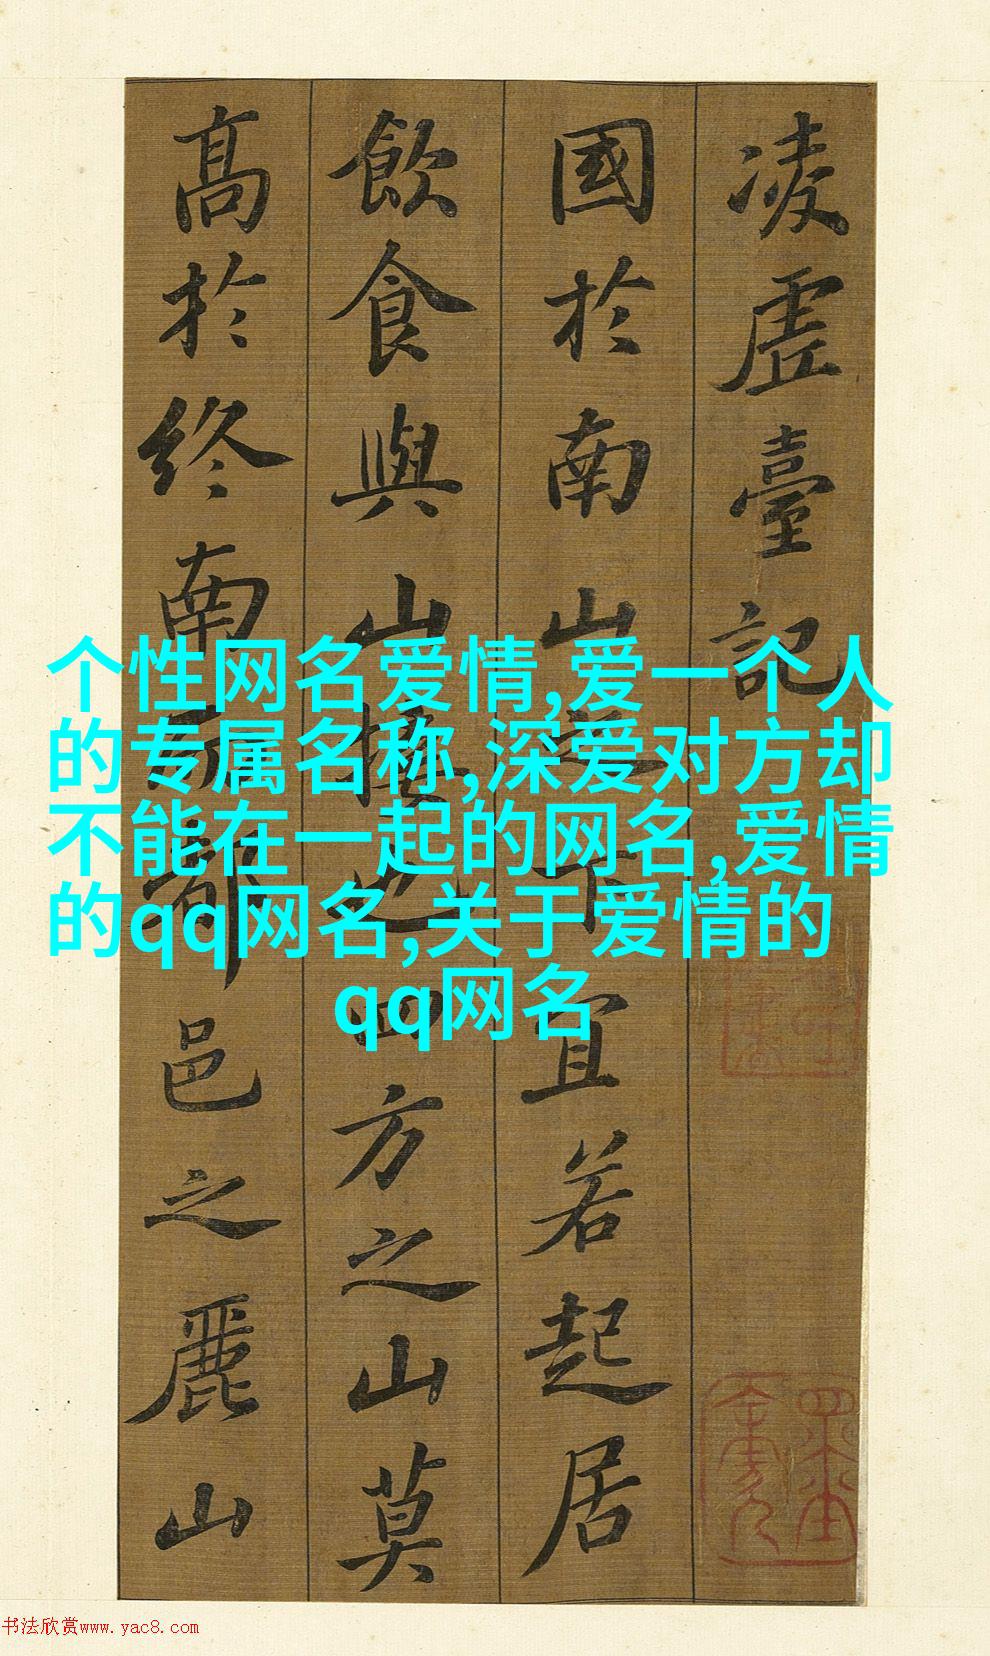 凌虛臺記
國於南山之下宜若起居
飲食與山接也四方之山莫
高於終南而都邑之麗山
个性网名爱情,爱一个人
的专属名称,深爱对方却
不能在一起的网名,爱情
的qq网名,关于爱情的
qq网名
书法欣赏www.yac8.com